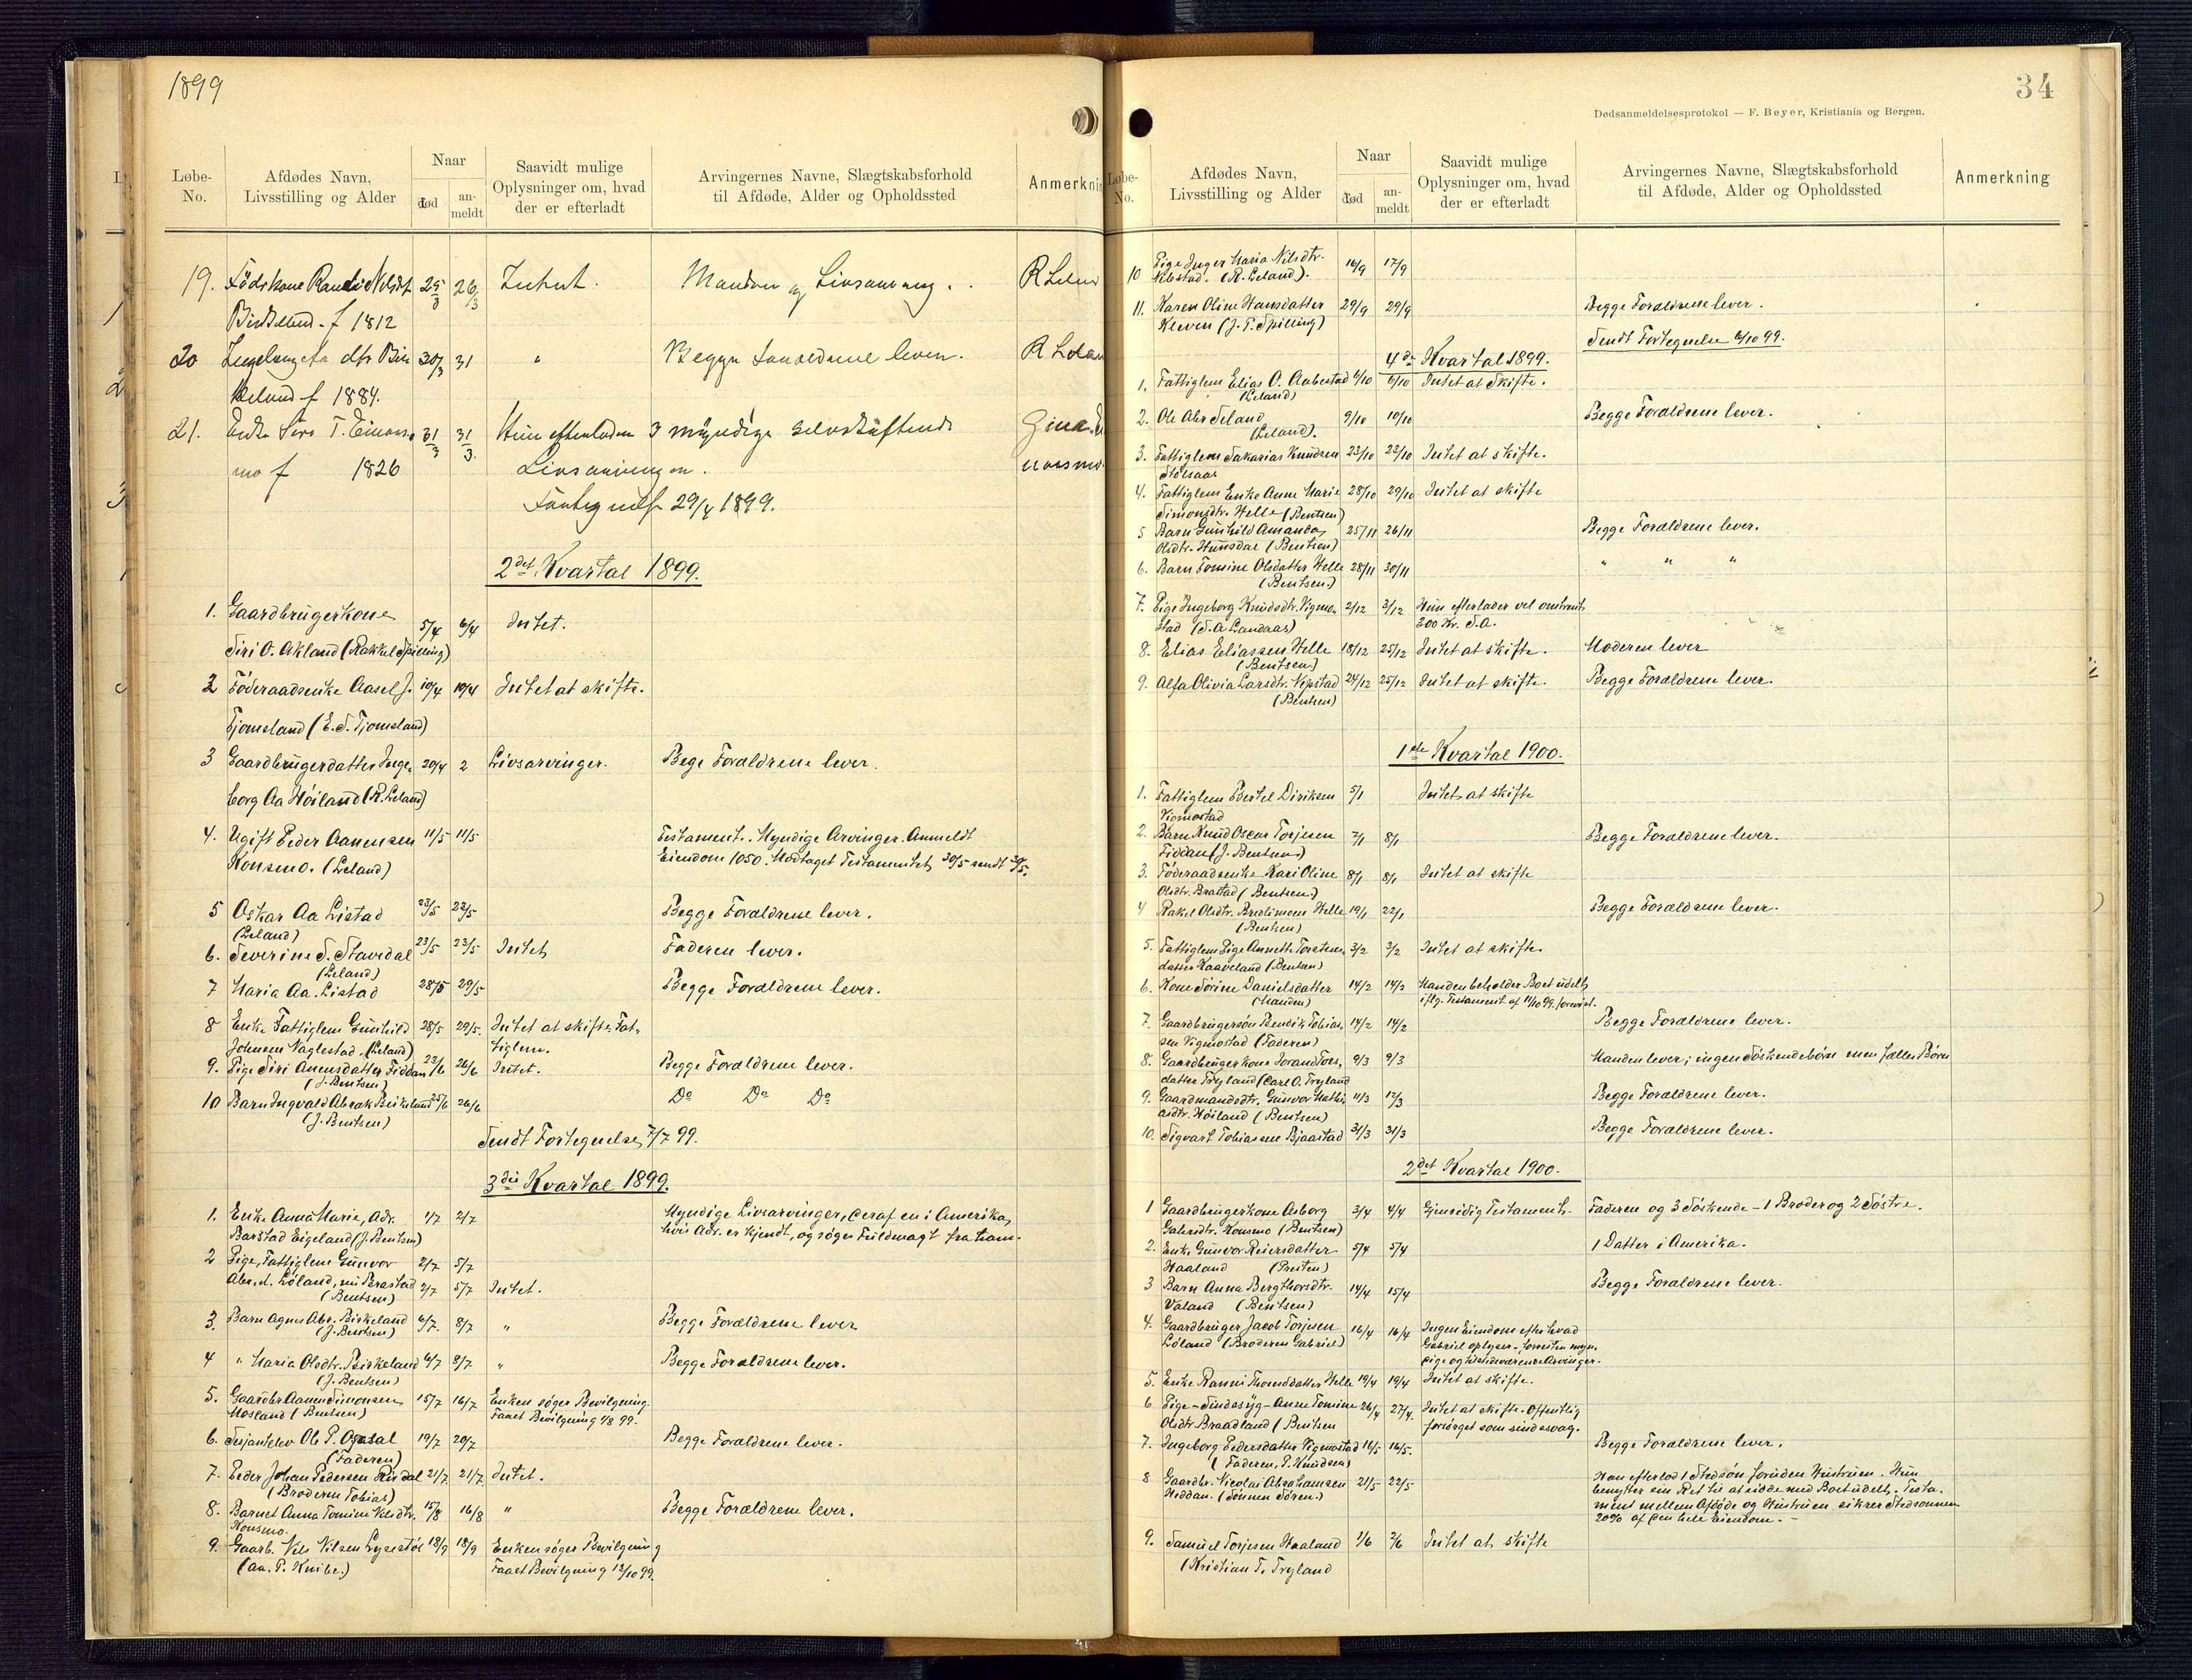 1899
Løbe-
No.
Afdødes Navn,
Livsstilling og Alder
Naar
død
an-
meldt
Saavidt mulige
Oplysninger om, hvad
der er efterladt
Arvingernes Navne, Slægtskabsforhold
til Afdøde, Alder og Opholdssted
Anmerknin
19. Födskone 25/3 26/3 Intet. Manden og Livsarving. R Lelan
f 1812
20 30/3 31 " Begge Forældrene lever. R Lelan
f 1884.
21. Enke Siri T. 31/3 31/3 Hun efterlader 3 myndige selvskiftende Gina
mo f 1826 Livsarvinger.
29/4 1899.
2det Kvartal 1899.
1. Gaardbrugerkone 5/4 6/4 Intet.
Siri O. Akland (Rakkel Spilling)
2 Föderaadsenke Aasel J. 10/4 10/4 Intet at skifte.
Tjomsland (E. S. Tjomsland)
3 Gaardbrugerdatter Inge- 20/4 2 Livsarvinger. Bege Forældrene lever.
borg Aa Höiland (R. Leland)
4. Ugift Peder Aanensen 11/5 11/5 Testament. Myndige Arvinger. Anmeldt
Konsmo. (Leland) Eiendom 1050. Modtaget Testamentet 30/5 sendt 30/5.
5 Oskar Aa Listad 23/5 23/5 Begge Forældrene lever.
(Leland)
6. Severine S. Stavrdal 23/5 23/5 Intet Faderen lever.
(Leland)
7 Maria Aa. Listad 28/5 29/5 Begge Forældrene lever.
8 Enke Fattiglem Gunhild 28/5 29/5. Intet at skifte. Fat-
Johnsen Naglestad. (Leland) tiglem.
9. Pige Siri Anensdatter Fiddan 23/6 26/6 Intet. Begge Forældrene lever.
(J. Bentsen)
10 Barn Ingvald Abrak Birkeland 25/6 26/6 Do Do Do
(J. Bentsen)
Sendt Fortegnelse 7/7 99.
3die Kvartal 1899.
1. Enke Anna Marie, Adr. 1/7 2/7 Myndige Livsarvinger, deraf en i Amerika,
Barstad Eigeland (J. Bentsen) hvis Adr. er kjendt, og söges Fuldmagt fra ham.
2 Pige, Fattiglem Gunvor 2/7 5/7
Abr. d. Löland, nu Brastad 2/7 5/7 Intet.
(Bentsen)
3. Barn Agnes Abr. Birkeland 6/7 8/7 " Begge Forældrene lever
(J. Bentsen)
4 " Maria Olsdtr. Birkeland 6/7 8/7 " Begge Forældrene lever.
(J. Bentsen)
5. Gaardbr. Aanen Simonsen 15/7 16/7 Enken söger Bevilgning.
Mosland (Bentsen) Faaet Bevilgning 7/8 99.
6. Ole P. Opsal 19/7 20/7 Begge Forældrene lever.
(Faderen)
7. Peder Johan Pedersen Risdal 21/7 21/7 Intet.
(Broderen Tobias)
8. Barnet Anna Tomine Nlsdtr. 15/8 16/8 " Begge Forældrene lever.
Konsmo.
9. Gaarb. Nils Nilsen Lysestöl 18/9 18/9 Enken söger Bevilgning
(aa. P. Knibe.) Faaet Bevilgning 13/10 99.
34
Dødsanmeldelsesprotokol — F. Beyer, Kristiania og Bergen.
Løbe-
No.
Afdødes Navn,
Livsstilling og Alder
Naar
død
an-
meldt
Saavidt mulige
Oplysninger om, hvad
der er efterladt
Arvingernes Navne, Slægtskabsforhold
til Afdøde, Alder og Opholdssted
Anmerkning
10 Pige Inger Maria Nilsdtr. 16/9 17/9
(R. Leland).
11. Karen Oline Hansdatter 29/9 29/9 Begge Forældrene lever.
Kleven (J. P. Spilling)
Sendt Fortegnelse 6/10 99.
4de Kvartal 1899.
1. Fattiglem Elias O. Aabestad 6/10 6/10 Intet at Skifte.
(Leland)
2. Ole Abr Seland 9/10 10/10 Begge Forældrene lever.
(Leland).
3. Fattiglem Sakarias Knudsen 23/10 23/10 Intet at skifte.
Stölsaas
4. Fattiglem Enke Anne Marie 28/10 29/10 Intet at skifte
Simonsdtr. Helle (Bentsen)
5 Barn Gunhild Amanda 25/11 26/11 Begge Forældrene lever.
Olsdtr. Hunsdal (Bentsen)
6. Barn Tomine Olsdatter Helle 28/11 30/11 " " "
(Bentsen.)
7. Pige Ingeborg Knudsdtr. Vigmo- 2/12 3/12 Hun efterlader vel omtrent
stad (S. A Landaas) 200 Kr. S. A.
8. Elias Eliassen Helle 18/12 25/12 Intet at skifte. Moderen lever
(Bentsen)
9. Alfa Olivia Larsdtr. Vepstad 24/12 25/12 Intet at skifte. Begge Forældrene lever.
(Bentsen)
1ste Kvartal 1900.
1. Fattiglem Bertel Diriksen 5/1 Intet at skifte
Vigmostad
2. Barn Knud Oscar Torjesen 7/1 8/1 Begge Forældrene lever.
Fiddan (J. Bentsen.)
3. Föderaadsenke Kari Oline 8/1 8/1 Intet at skifte
Olsdtr. Brastad (Bentsen.)
4 Rakel Olsdtr. Helle 19/1 22/1 Begge Forældrene lever.
(Bentsen)
5. Fattiglem Pige Annette Torstens- 3/2 3/2 Intet at skifte.
datter Kaaveland (Bentsen)
6. Kone Sörine Danielsdatter 14/2 14/2 Manden beholder Boet udelt
(Manden) iflg. Testament af 11/10 99. forevist.
7. Gaardbrugersön Bendik Tobias- 14/2 14/2 Begge Forældrene lever.
sen Vigmostad (Faderen)
8. Gaardbrugerkone Jorand Tors- 9/3 9/3 Manden lever; ingen Söskendebörn men fælles Börn
datter Tryland (Carl O. Tryland
9. Gaardmandsdtr. Gunvor Mathi- 11/3 12/3 Begge Forældrene lever.
asdtr. Höiland (Bentsen)
10. Sigvart Tobiassen Bjaastad 31/3 31/3 Begge Forældrene lever.
2det Kvartal 1900.
1 Gaardbrugerkone Asborg 3/4 4/4 Gjensidig Testament. Faderen og 3 Söskende - 1 Broder og 2 Söstre.
Gabrsdtr. Konsmo (Bentsen)
2. Enk. Gunvor Reiersdatter 5/4 5/4 1 Datter i Amerika.
Haaland (Presten)
3 Barn Anna Bergthorsdtr. 14/4 15/4 Begge Forældrene lever.
Valand (Bentsen)
4. Gaardbruger Jacob Torjesen 16/4 16/4 Ingen Eiendom efter hvad
Löland (Broderen Gabriel) Gabriel oplyser, forresten myn-
dige og tilstedeværende Arvinger.
5. Enke Ranni Thomsdatter Helle 19/4 19/4 Intet at skifte.
6 Pige - Sindssyg - Anne Tomine 26/4 27/4. Intet at skifte. Offentlig
Olsdtr. Braadland (Bentsen forsörget som sindssvag.
7. Ingeborg Pedersdatter Vigmostad 16/5 16/5. Begge Forældrene lever.
(Faderen, P. Knudsen)
8 Gaardbr. Nicolai Abrahamsen 21/5 22/5 Han efterlod 1 Stedsön foruden Hustruen. Hun
Heddan. (Sönnen Sören.) benytter sin Ret til at sidde med Boet udelt. Testa-
ment mellem Afdöde og Hustruen sikrer Stedsönnen
20% af den hele Eiendom. -
9. Samuel Torjesen Haaland 1/6 2/6 Intet at skifte
(Kristian T. Tryland